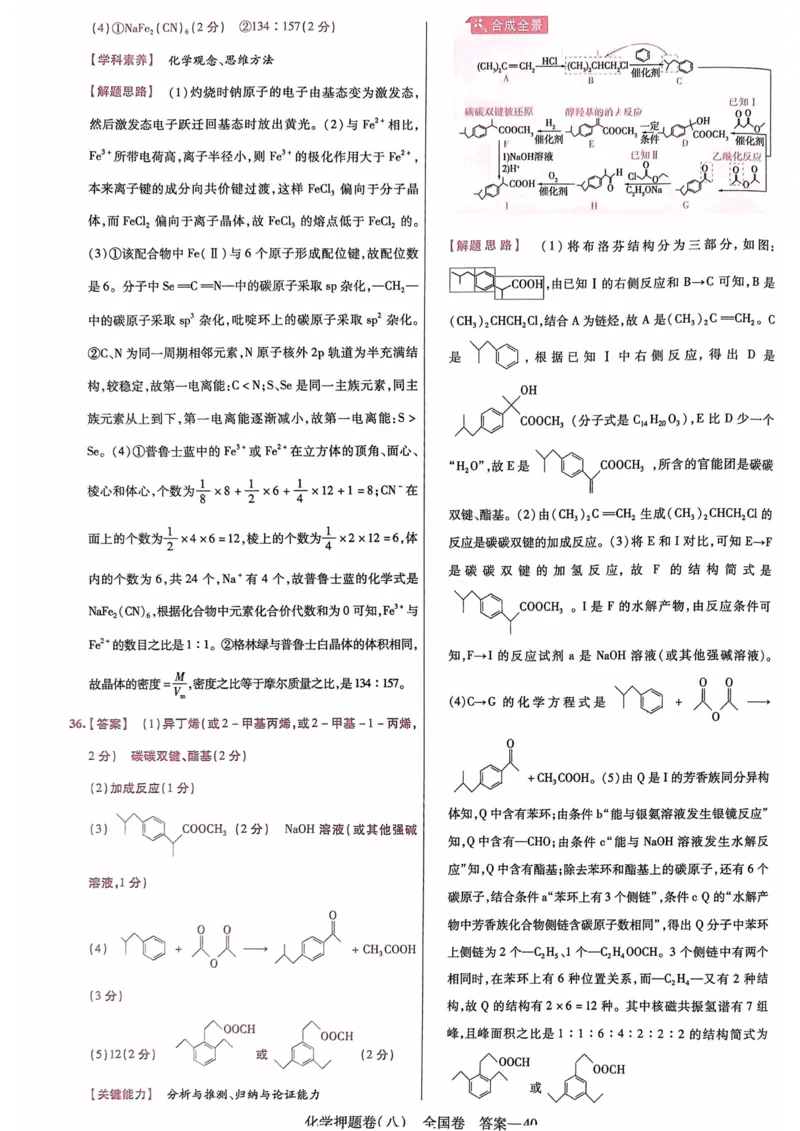 (4)①NaFe₂(CN)₆(2分) ②134∶157(2分)
【学科素养】 化学观念、思维方法
【解题思路】 (1)灼烧时钠原子的电子由基态变为激发态,
然后激发态电子跃迁回基态时放出黄光。(2)与 Fe²⁺相比,
Fe³⁺所带电荷高,离子半径小,则 Fe³⁺的极化作用大于 Fe²⁺,
本来离子键的成分向共价键过渡,这样 FeCl₃ 偏向于分子晶
体,而 FeCl₂ 偏向于离子晶体,故 FeCl₃ 的熔点低于 FeCl₂ 的。
(3)①该配合物中 Fe(Ⅱ)与 6 个原子形成配位键,故配位数
是 6。分子中 Se═C═N—中的碳原子采取 sp 杂化,—CH₂—
中的碳原子采取 sp³ 杂化,吡啶环上的碳原子采取 sp² 杂化。
②C、N 为同一周期相邻元素,N 原子核外 2p 轨道为半充满结
构,较稳定,故第一电离能:C<N;S、Se 是同一主族元素,同主
族元素从上到下,第一电离能逐渐减小,故第一电离能:S>
Se。(4)①普鲁士蓝中的 Fe³⁺或 Fe²⁺在立方体的顶角、面心、
棱心和体心,个数为 1/8 ×8+ 1/2 ×6+ 1/4 ×12+1=8;CN⁻在
面上的个数为 1/2 ×4×6=12,棱上的个数为 1/4 ×2×12=6,体
内的个数为 6,共 24 个,Na⁺有 4 个,故普鲁士蓝的化学式是
NaFe₂(CN)₆,根据化合物中元素化合价代数和为 0 可知,Fe³⁺与
Fe²⁺的数目之比是 1∶1。②格林绿与普鲁士白晶体的体积相同,
故晶体的密度= M/Vₘ ,密度之比等于摩尔质量之比,是 134∶157。
36.【答案】 (1)异丁烯(或 2-甲基丙烯,或 2-甲基-1-丙烯,
2分) 碳碳双键、酯基(2分)
(2)加成反应(1分)
(3) COOCH₃ (2分) NaOH 溶液(或其他强碱
溶液,1分)
(4) + O O O ⟶ O +CH₃COOH
(3分)
(5)12(2分) OOCH 或 OOCH (2分)
【关键能力】 分析与推测、归纳与论证能力
合成全景
(CH₃)₂C═CH₂ HCl (CH₃)₂CHCH₂Cl 催化剂
A B C
碳碳双键被还原 醇羟基的消去反应 已知Ⅰ
COOCH₃ H₂ 催化剂 COOCH₃ 一定 条件 OH COOCH₃ O O O 催化剂
F E D
1)NaOH溶液
2)H⁺
已知Ⅱ 乙酰化反应
COOH O₂ 催化剂 H O Cl O O C₂H₅ONa O O O O
I H G
【解题思路】 (1)将布洛芬结构分为三部分,如图:
COOH ,由已知Ⅰ的右侧反应和 B→C 可知,B 是
(CH₃)₂CHCH₂Cl,结合 A 为链烃,故 A 是(CH₃)₂C═CH₂。C
是 ,根据已知Ⅰ中右侧反应,得出 D 是
OH COOCH₃ (分子式是 C₁₄H₂₀O₃),E 比 D 少一个
“H₂O”,故 E 是 COOCH₃ ,所含的官能团是碳碳
双键、酯基。(2)由(CH₃)₂C═CH₂ 生成(CH₃)₂CHCH₂Cl 的
反应是碳碳双键的加成反应。(3)将 E 和 I 对比,可知 E→F
是碳碳双键的加氢反应,故 F 的结构简式是
COOCH₃ 。I 是 F 的水解产物,由反应条件可
知,F→I 的反应试剂 a 是 NaOH 溶液(或其他强碱溶液)。
(4)C→G 的化学方程式是 + O O O ⟶
O +CH₃COOH。(5)由 Q 是 I 的芳香族同分异构
体知,Q 中含有苯环;由条件 b“能与银氨溶液发生银镜反应”
知,Q 中含有—CHO;由条件 c“能与 NaOH 溶液发生水解反
应”知,Q 中含有酯基;除去苯环和酯基上的碳原子,还有 6 个
碳原子,结合条件 a“苯环上有 3 个侧链”,条件 c Q 的“水解产
物中芳香族化合物侧链含碳原子数相同”,得出 Q 分子中苯环
上侧链为 2 个—C₂H₅、1 个—C₂H₄OOCH。3 个侧链中有两个
相同时,在苯环上有 6 种位置关系,而—C₂H₄—又有 2 种结
构,故 Q 的结构有 2×6=12 种。其中核磁共振氢谱有 7 组
峰,且峰面积之比是 1∶1∶6∶4∶2∶2∶2 的结构简式为
OOCH 或 OOCH
化学押题卷(八) 全国卷 答案—40